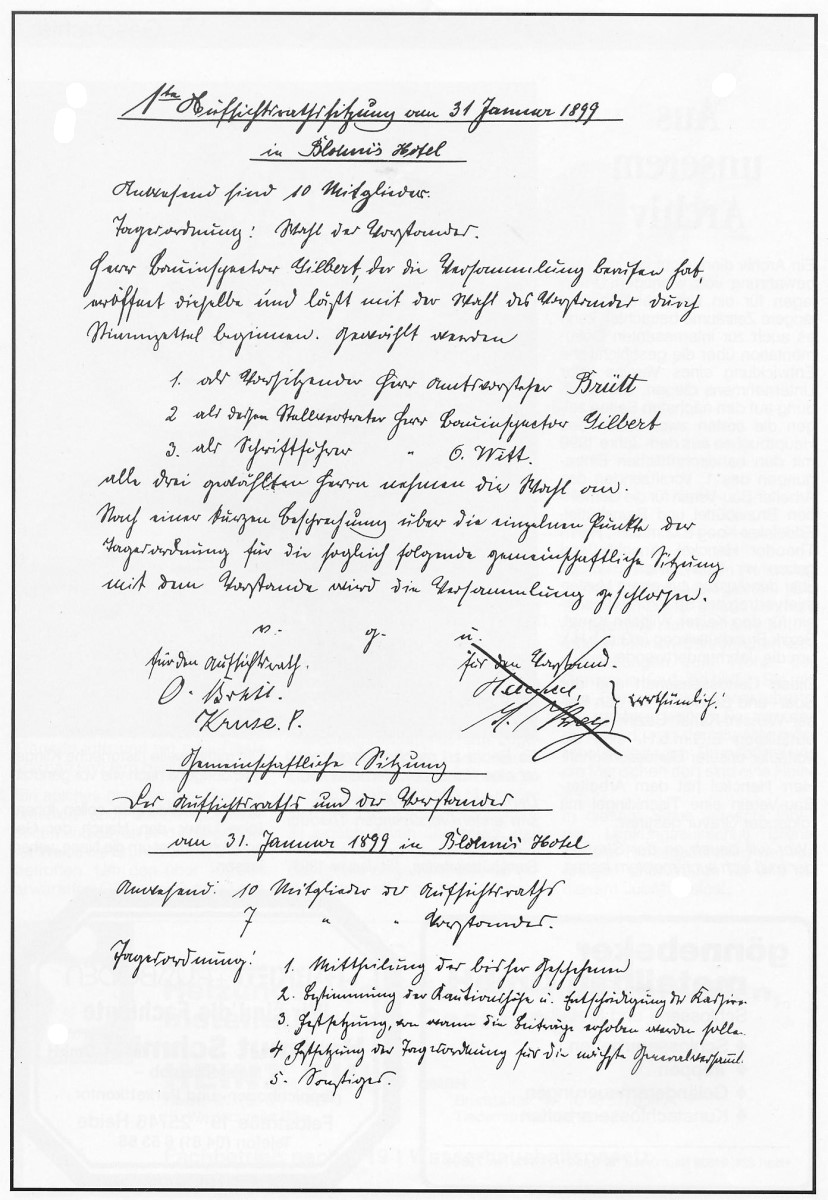 1te Aufsichtsrathssitzung am 31 Januar 1899
in Hotel
Anwesend sind 10 Mitglieder.
Tagesordnung: Wahl des Vorstandes.
Herr Bauinspector Gilbert, der die Versammlung berufen hat,
eröffnet dieselbe und läßt mit der Wahl des Vorstandes durch
Stimmzettel beginnen. Gewählt werden
1. als Vorsitzender Herr Amtsvorsteher Brütt
2 als dessen Stellvertreter Herr Bauinspector Gilbert
3. als Schriftführer " Witt.
alle drei gewählten Herrn nehmen die Wahl an.
Nach einer kurzen Besprechung über die einzelnen Punkte der
Tagesordnung für die sogleich folgende gemeinschaftliche Sitzung
mit dem Vorstande wird die Versammlung geschlossen.
v. g. u.
für den Aufsichtsrath. für den Vorstand.
O. Brütt.
Kruse. P. irrthümlich!
Gemeinschaftliche Sitzung
des Aufsichtsraths und des Vorstandes
am 31. Januar 1899 in Hotel
Anwesend: 10 Mitglieder des Aufsichtsraths
7 " " Vorstandes.
Tagesordnung: 1. Mittheilung des bisher Geschehenen
2. Bestimmung der Kautionshöhe u. Entschädigung des Kassirers
3. Festsetzung, von wann die Beiträge erhoben werden sollen
4 Festsetzung der Tagesordnung für die nächste Generalversamml.
5. Sonstiges.